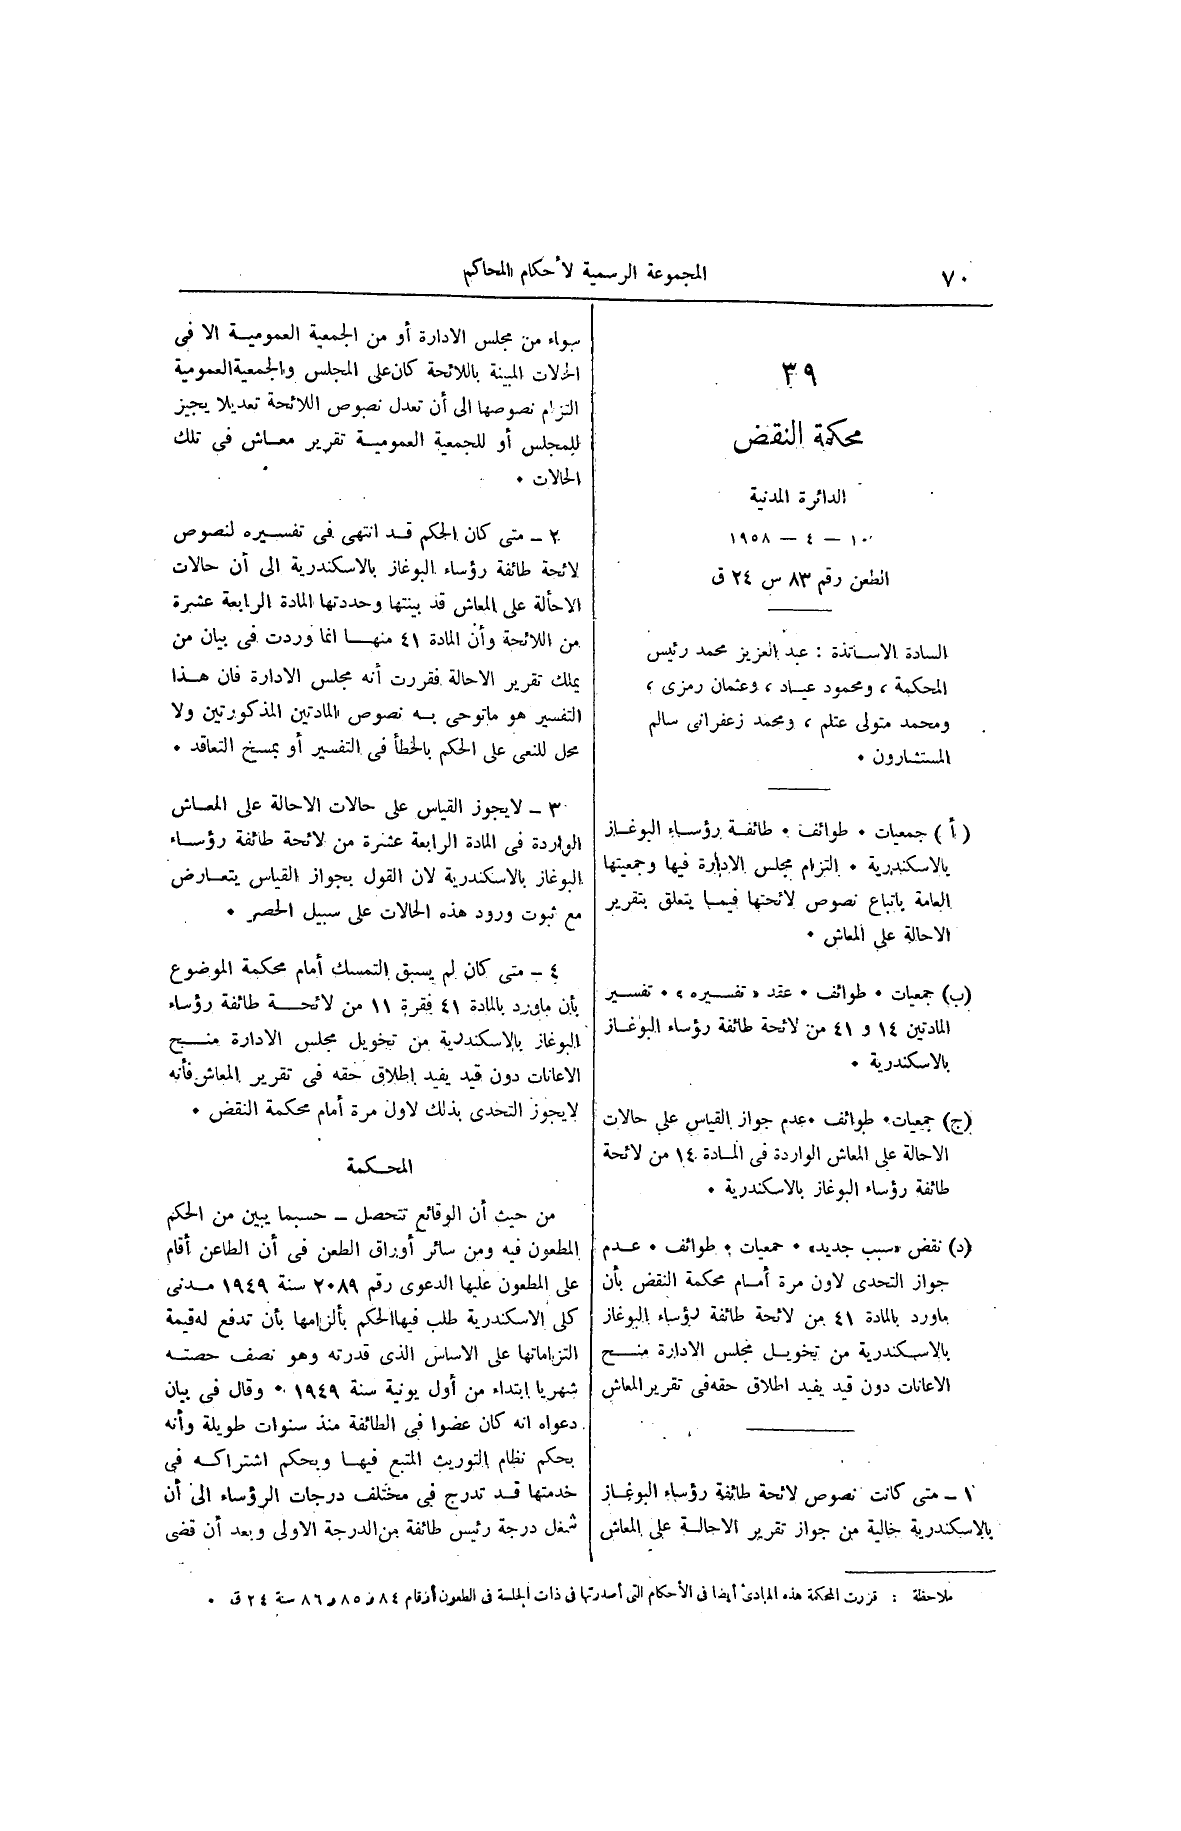 ٧٠
المجموعة الرسمية لأحكام المحاكم
٣٩
محكمة النقض
الدائرة المدنية
١٠ – ٤ – ١٩٥٨
الطعن رقم ٨٣ س ٢٤ ق
السادة الاساتذة : عبد العزيز محمد رئيس
المحكمة ، ومحمود عياد ، وعثمان رمزى ،
ومحمد متولى عتلم ، ومحمد زعفرانى سالم
المستشارون .
( أ ) جمعيات . طوائف . طائفة رؤساء البوغاز
بالاسكندرية . التزام مجلس الادارة فيها وجمعيتها
العامة باتباع نصوص لائحتها فيما يتعلق بتقرير
الاحالة على المعاش .
(ب) جمعيات . طوائف . عقد « تفسيره » . تفسير
المادتين ١٤ و ٤١ من لائحة طائفة رؤساء البوغاز
بالاسكندرية .
(ج) جمعيات. طوائف .عدم جواز القياس على حالات
الاحالة على المعاش الواردة فى المادة ١٤ من لائحة
طائفة رؤساء البوغاز بالاسكندرية .
(د) نقض «سبب جديد» . جمعيات . طوائف . عدم
جواز التحدى لاون مرة أمام محكمة النقض بأن
ماورد بالمادة ٤١ من لائحة طائفة رؤساء البوغاز
بالاسكندرية من تخويل مجلس الادارة منح
الاعانات دون قيد يفيد اطلاق حقه فى تقرير المعاش
١ – متى كانت نصوص لائحة طائفة رؤساء البوغاز
بالاسكندرية خالية من جواز تقرير الاحالة على المعاش
سواء من مجلس الادارة أو من الجمعية العمومية الا فى
الحالات المبينة باللائحة كان على المجلس والجمعية العمومية
التزام نصوصها الى أن تعدل نصوص اللائحة تعديلا يجيز
للمجلس أو للجمعية العمومية تقرير معاش فى تلك
الحالات .
٢ – متى كان الحكم قد انتهى فى تفسيره لنصوص
لائحة طائفة رؤساء البوغاز بالاسكندرية الى أن حالات
الاحالة على المعاش قد بينتها وحددتها المادة الرابعة عشرة
من اللائحة وأن المادة ٤١ منها انما وردت فى بيان من
يملك تقرير الاحالة فقررت أنه مجلس الادارة فان هذا
التفسير هو ماتوحى به نصوص المادتين المذكورتين ولا
محل للنعى على الحكم بالخطأ فى التفسير أو بمسخ التعاقد .
٣ – لايجوز القياس على حالات الاحالة على المعاش
الواردة فى المادة الرابعة عشرة من لائحة طائفة رؤساء
البوغاز بالاسكندرية لان القول بجواز القياس يتعارض
مع ثبوت ورود هذه الحالات على سبيل الحصر .
٤ – متى كان لم يسبق التمسك أمام محكمة الموضوع
بأن ماورد بالمادة ٤١ فقرة ١١ من لائحة طائفة رؤساء
البوغاز بالاسكندرية من تخويل مجلس الادارة منح
الاعانات دون قيد يفيد اطلاق حقه فى تقرير المعاش فأنه
لايجوز التحدى بذلك لاول مرة أمام محكمة النقض .
المحكمة
من حيث أن الوقائع تتحصل – حسبما يبين من الحكم
المطعون فيه ومن سائر أوراق الطعن فى أن الطاعن أقام
على المطعون عليها الدعوى رقم ٢٠٨٩ سنة ١٩٤٩ مدنى
كلى الاسكندرية طلب فيها الحكم بألزامها بأن تدفع له قيمة
التزاماتها على الاساس الذى قدرته وهو نصف حصته
شهريا ابتداء من أول يونية سنة ١٩٤٩ . وقال فى بيان
دعواه انه كان عضوا فى الطائفة منذ سنوات طويلة وأنه
بحكم نظام التوريث المتبع فيها وبحكم اشتراكه فى
خدمتها قد تدرج فى مختلف درجات الرؤساء الى أن
شغل درجة رئيس طائفة من الدرجة الاولى وبعد أن قضى
ملاحظة : قررت المحكمة هذه المبادئ أيضا فى الأحكام التى أصدرتها فى ذات الجلسة فى الطعون أرقام ٨٤ و ٨٥ و ٨٦ سنة ٢٤ ق .